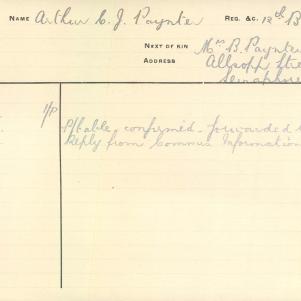 NAME Arthur C. J. Paynter REG. &C. 12th B
NEXT OF KIN Mrs B. Paynter
ADDRESS Allsopp Stre
Semaphore
1/P P/table confirmed - forwarded
Reply from Commun Information